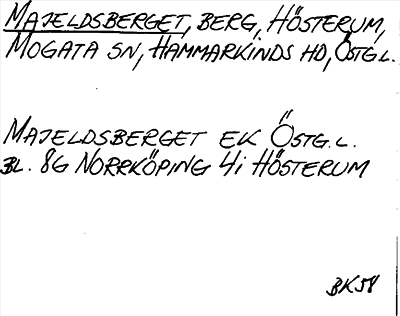 MAJELDSBERGET, BERG, HÖSTERUM,
MOGATA SN, HAMMARKINDS HD, ÖSTG L.
MAJELDSBERGET EK ÖSTG. L.
BL. 8G NORRKÖPING 4i HÖSTERUM
BK58